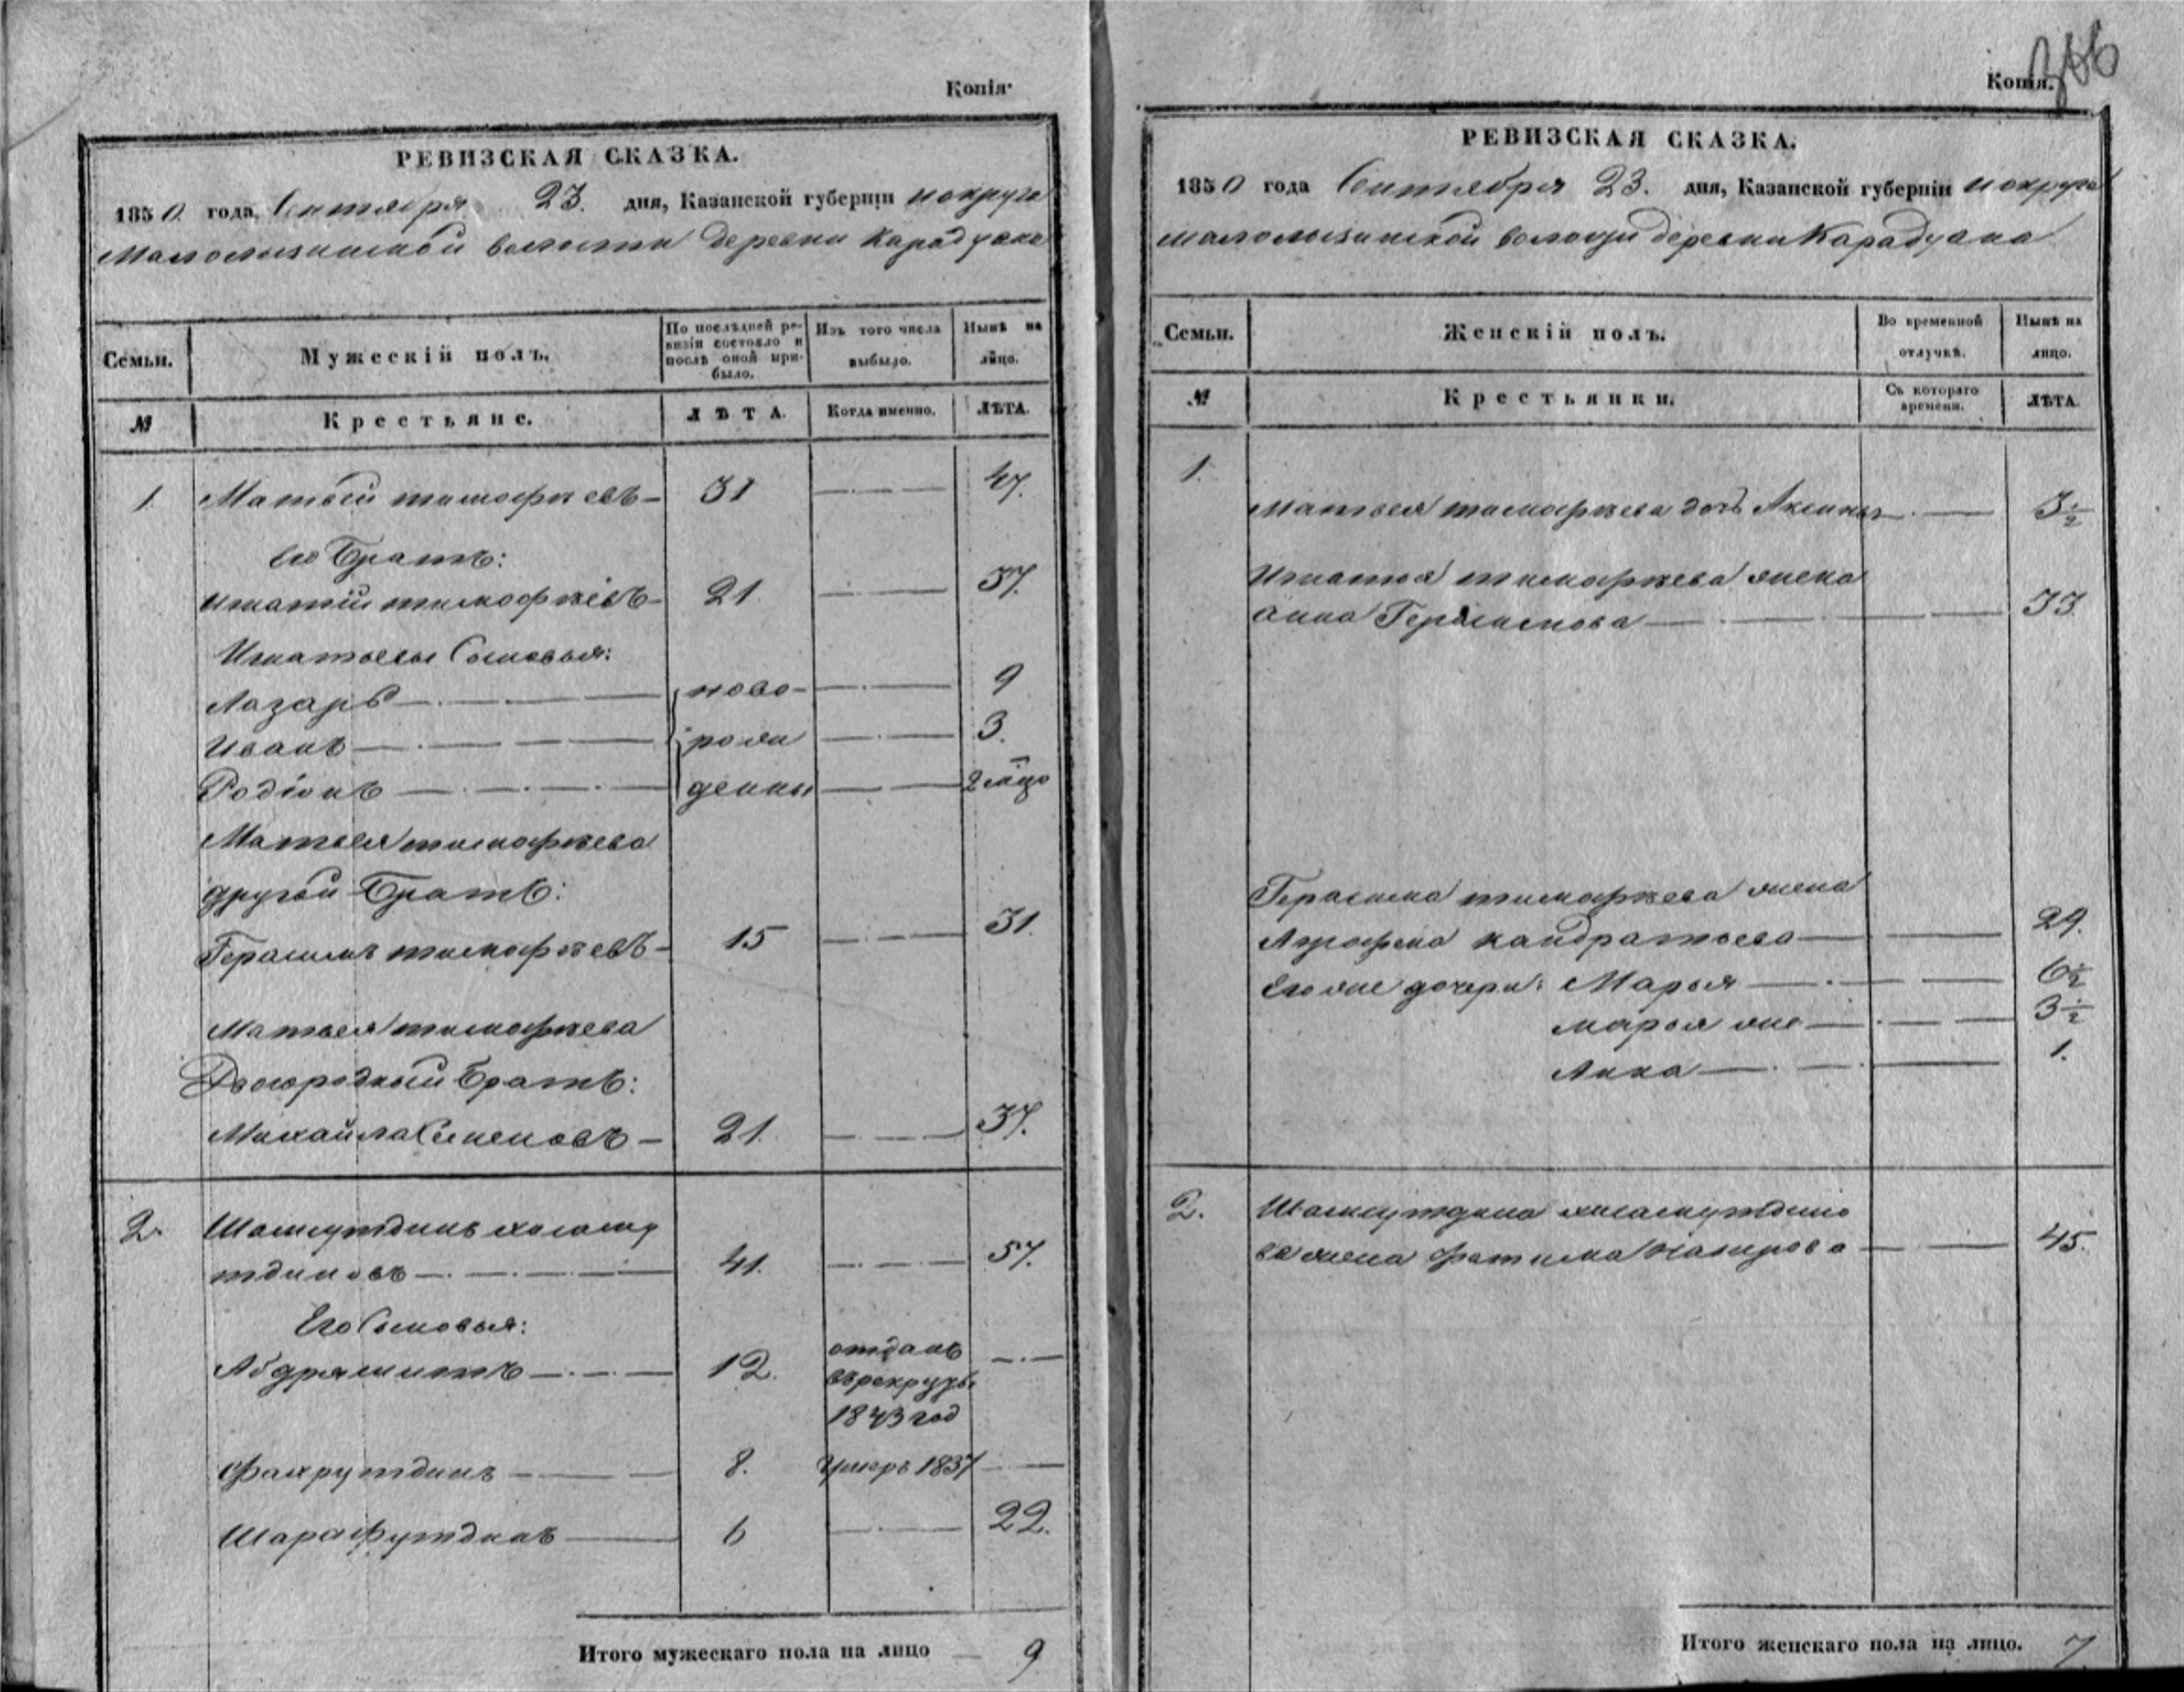 Копія·
РЕВИЗСКАЯ СКАЗКА.
1850 года Сентября 23. дня, Казанской губерніи и округа
Маломызинской волости деревни Карадуана
Семьи.
Мужескій полъ.
По послѣдней ре-
визіи состояло и
послѣ оной при-
было.
Изъ того числа
выбыло.
Нынѣ на
лицо.
№
Крестьяне.
ЛѢТА.
Когда именно.
ЛѢТА.
1 Матвей тимофѣевъ 31 47.
Его Братъ:
игнатій тимофѣевъ 21. 37.
Игнатьевы Сыновья:
Лазарь ново- 9
Иванъ рожи 3.
Родіонъ денны 2 мѣцо
Матвея тимофѣева
другой Братъ:
Герасимъ тимофѣевъ 15 31.
Матвея тимофѣева
Двоюродный братъ:
Михайла Семеновъ 21. 37.
2. Шамсутдинъ хисаму
тдиновъ 41. 57.
Его Сыновья:
Абдряшитъ 12. отданъ
въ рекруты
1843 год
Фахрутдинъ 8. Умеръ 1837
Шарафутдинъ 6 22.
Итого мужескаго пола на лицо 9
Копія.
РЕВИЗСКАЯ СКАЗКА.
1850 года Сентября 23. дня, Казанской губерніи и округа
маломызинской волости деревни Карадуана
Семьи.
Женскій полъ.
Во временной
отлучкѣ.
Нынѣ на
лицо.
№
Крестьянки.
Съ котораго
времени.
ЛѢТА.
1.
Матвея тимофѣева дочь Аксинья 3½
Игнатья тимофѣева жена
анна Герасимова 33
Герасима тимофѣева жена
Агрофена кандратьева 29.
Его же дочери: Марья 6½
марья же 3½
Анна 1.
2. Шамсутдина хисамутдино
ва жена фатима Насирова 45.
Итого женскаго пола на лицо. 7